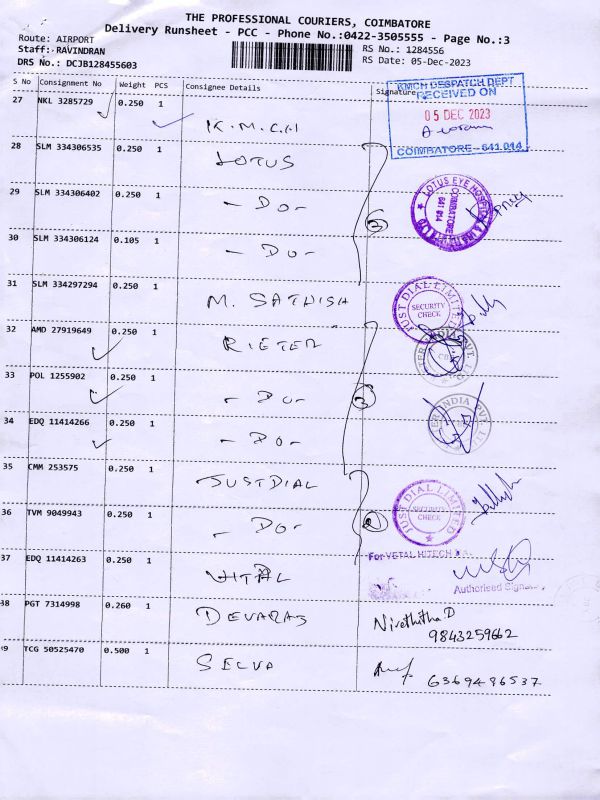 THE PROFESSIONAL COURIERS, COIMBATORE
Delivery Runsheet - PCC - Phone No.:0422-3505555 - Page No.:3
Route: AIRPORT
RS No.: 1284556
Staff: RAVINDRAN
RS Date: 05-Dec-2023
DRS No.: DCJB128455603
S No Consignment No Weight PCS Consignee Details Signature
KMCH DESPATCH DEPT
RECEIVED ON
05 DEC 2023
COIMBATORE - 641 014
27 NKL 3285729 0.250 1 K.M.C.H
28 SLM 334306535 0.250 1 LOTUS
29 SLM 334306402 0.250 1 - DO -
LOTUS EYE HOSPITAL
COIMBATORE
641 014
3
30 SLM 334306124 0.105 1 - DO -
31 SLM 334297294 0.250 1 M. SATHISH
JUST DIAL LIMITED
SECURITY
CHECK
32 AMD 27919649 0.250 1 RIETER
33 POL 1255902 0.250 1 - DO -
3
34 EDQ 11414266 0.250 1 - DO -
INDIA PVT. LTD
35 CMM 253575 0.250 1 JUSTDIAL
36 TVM 9049943 0.250 1 - DO -
2
JUST DIAL LIMITED
SECURITY
CHECK
For VETAL HITECH
37 EDQ 11414263 0.250 1 VITAL
Authorised Signatory
38 PGT 7314998 0.260 1 DEVARAJ Nivethitha D
9843259662
39 TCG 50525470 0.500 1 SELVA
6369496537